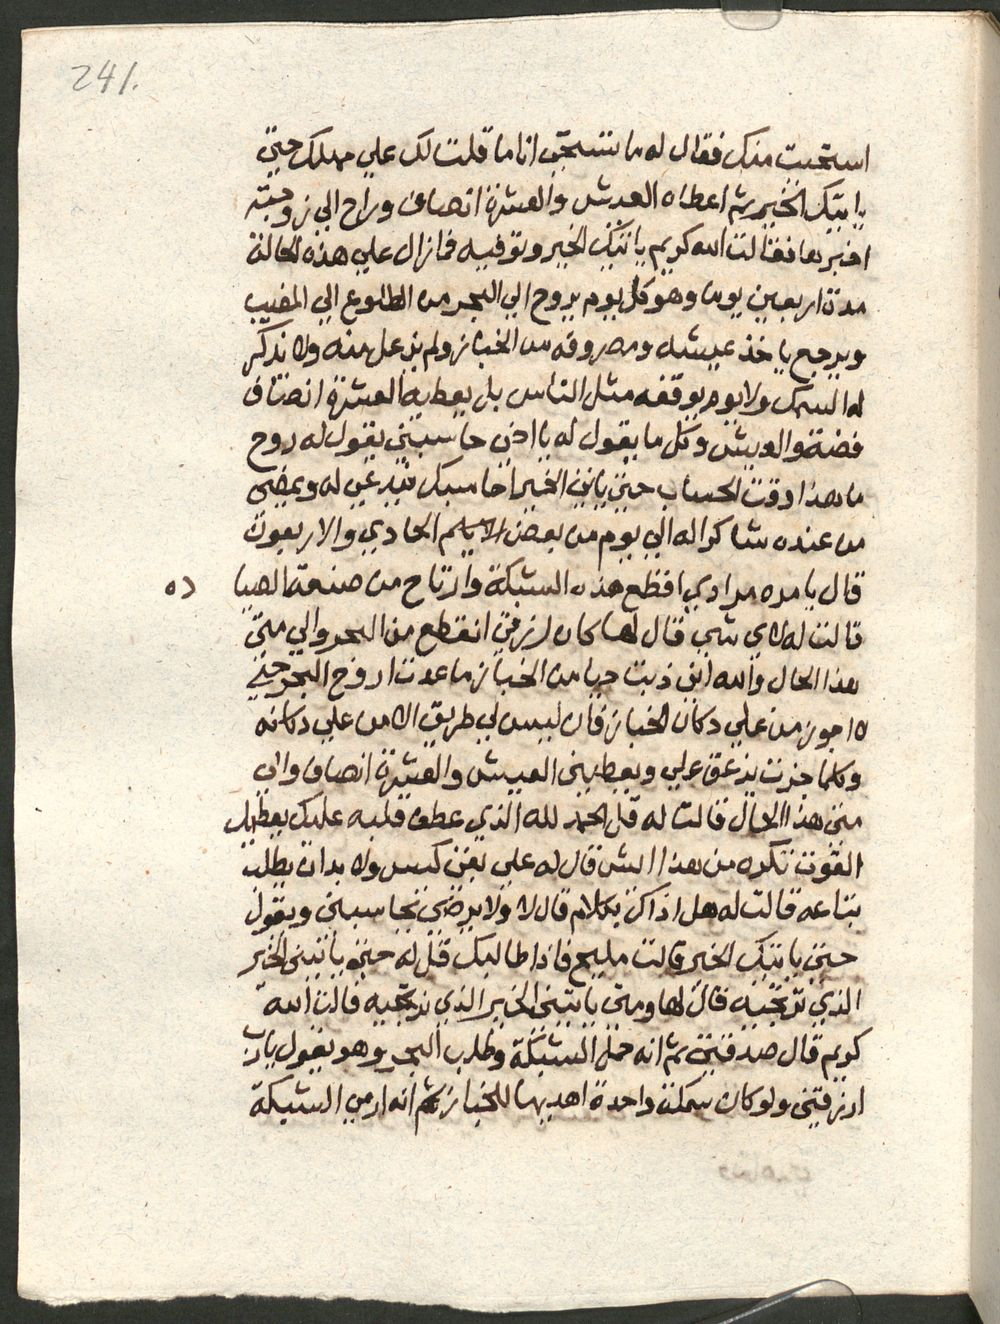 241.
استحيت منك فقال له ما تستحي انا ما قلت لك علي مهلك حتي
ياتيك الخير ثم اعطاه العيش والعشرة انصاف وراح الي زوجته
اخبرها فقالت الله كريم ياتيك الخير وتوفيه فما زال علي هذه الحالة
مدة اربعين يوما وهو كل يوم يروح الي البحر من الطلوع الي المغيب
ويرجع ياخذ عيشه ومصروفه من الخباز ولم يزعل منه ولا يذكر
له السمك ولا يوم يوقفه مثل الناس بل يعطيه العشرة انصاف
فضة والعيش وكل ما يقول له يا اخي حاسبني يقول له روح
ما هذا وقت الحساب حتي ياتي الخير احاسبك فيدعي له ويمضي
من عنده شاكرا له الي يوم من بعض الايام الحادي والاربعون
قال يا مره مرادي اقطع هذه الشبكة وارتاح من صنعة الصيا ده
قالت له لاي شي قال لها كان رزقي انقطع من البحر والي متي
هذا الحال والله اني ذبت حيا من الخباز ما عدت اروح البحر حتي
لا اجوز من علي دكان الخباز فان ليس لي طريق الا من علي دكانه
وكلما جزت يزعق علي ويعطيني العيش والعشرة انصاف والي
متي هذا الحال قالت له قل الحمد لله الذي عطف قلبه عليك يعطيك
القوت تكره من هذا ايش قال له علي بقي كيس ولا بد ان يطلب
بتاعه قالت له هل اذاك بكلام قال لا ولا يرضي يحاسبني ويقول
حتي ياتيك الخير قالت مليح فاذا طالبك قل له حتي ياتيني الخير
الذي ترتجيه قال لها ومتي ياتيني الخير الذي نرتجيه قالت الله
كريم قال صدقتي ثم انه حمل الشبكة وطلب البحر وهو يقول يارب
ارزقني ولو كان سمكة واحدة اهديها للخباز ثم انه ارمي الشبكة